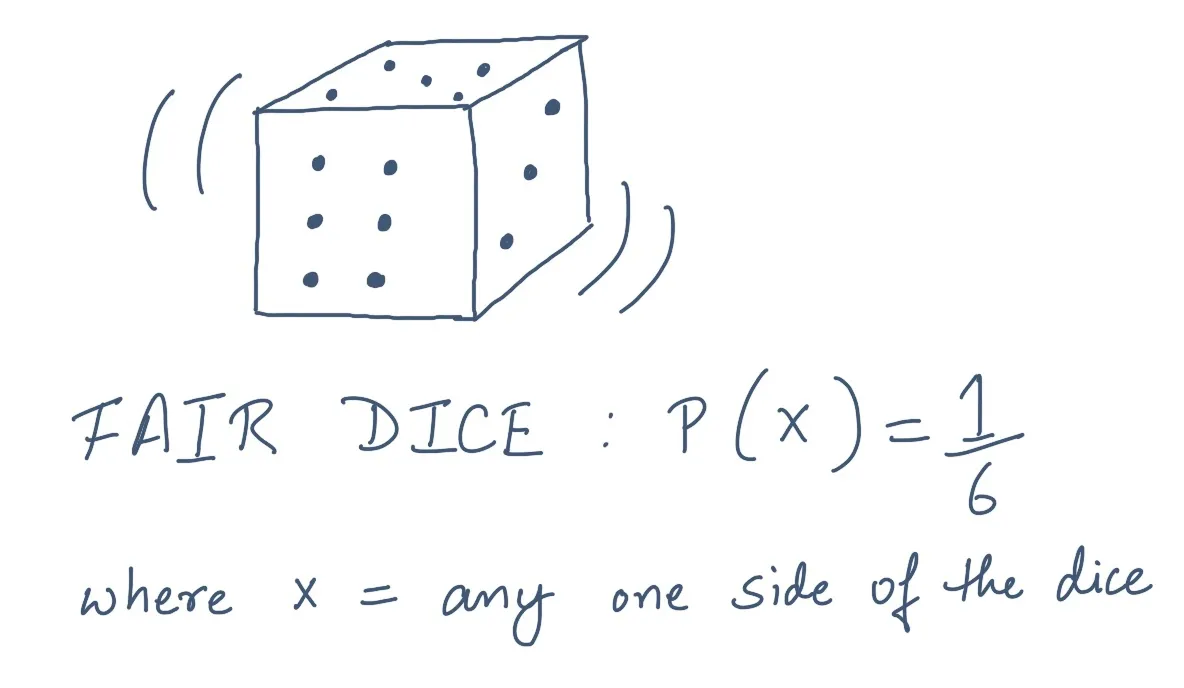 FAIR DICE : P(x) = 1/6
where x = any one side of the dice